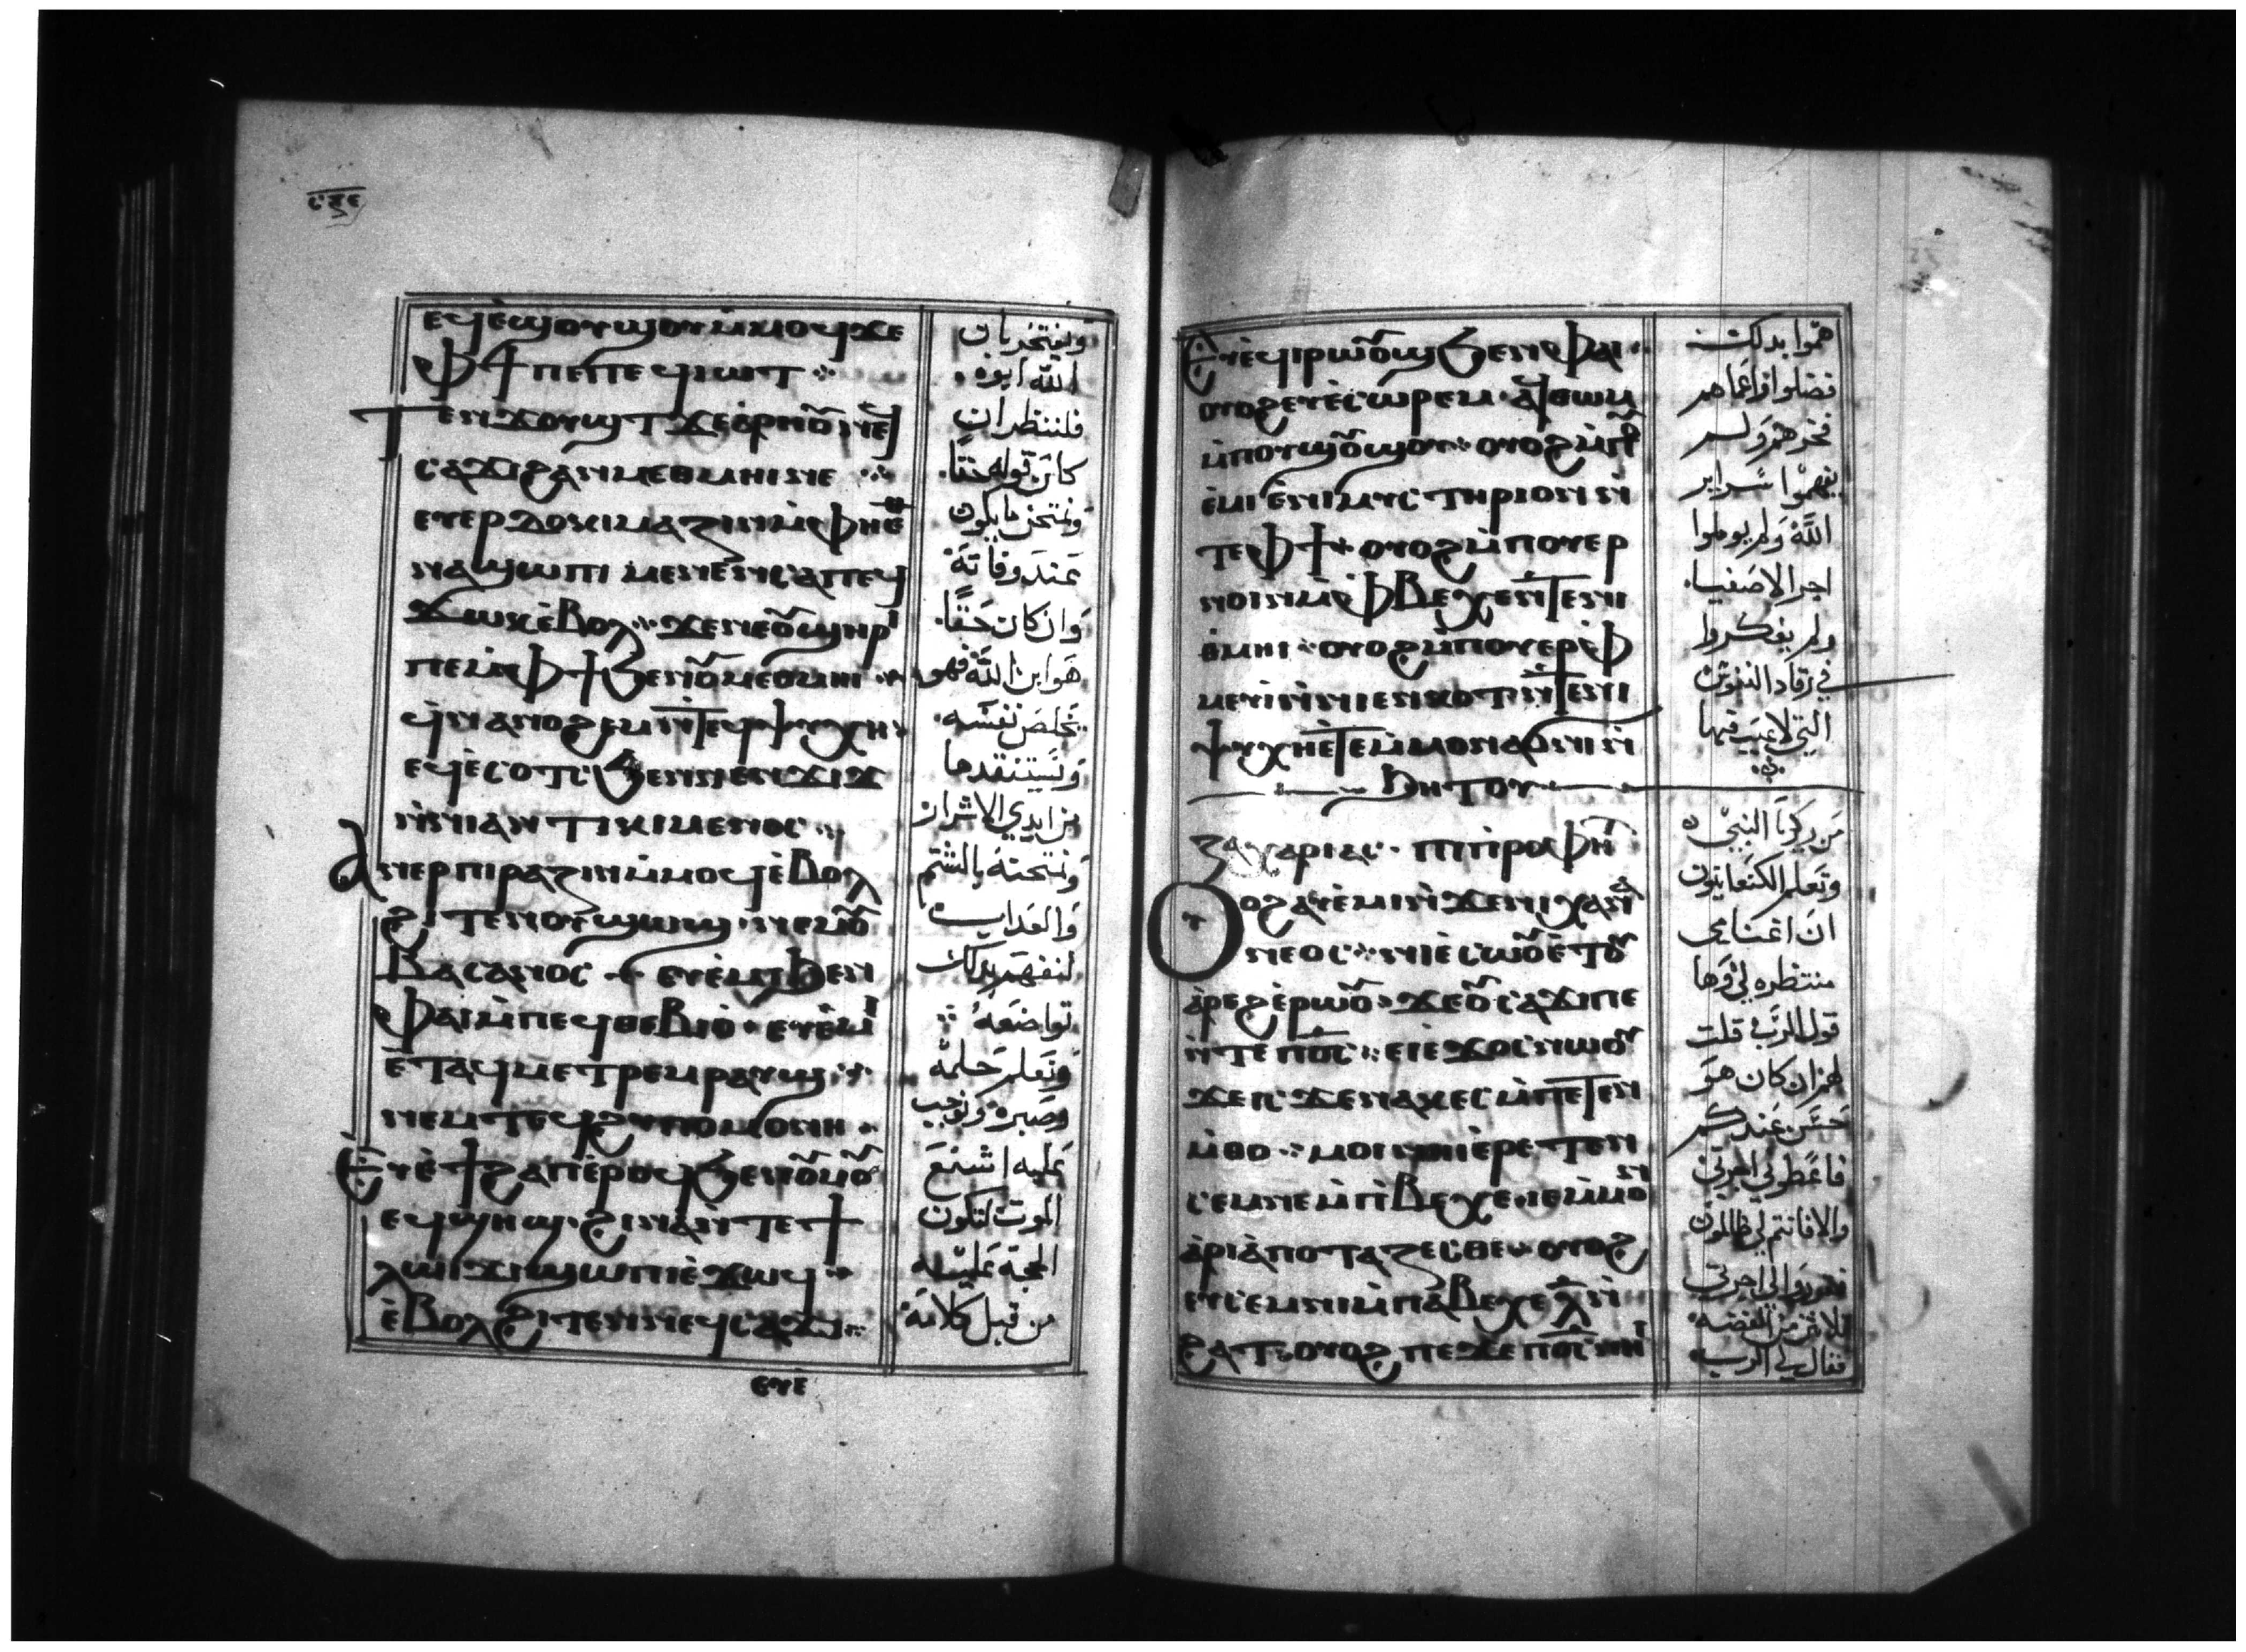 ⲉϥⲉ̀ϣⲟⲩϣⲟⲩ ⲙ̀ⲙⲟϥ ϫⲉ
ⲫϯ ⲡⲉ ⲡⲉϥⲓⲱⲧ
ⲧⲉⲛϫⲟⲩϣⲧ ϫⲉ
ⲥⲁϫⲓ ϩⲁⲛⲙⲉⲑⲙⲏⲓ ⲛⲉ
ⲉⲩⲉⲣⲇⲟⲕⲓⲙⲁⲍⲓⲛ ⲙ̀ⲫⲏⲉ̀
ⲛⲁϣⲱⲡⲓ ⲙⲉⲛⲉⲛⲥⲁ ⲡⲉϥ
ϫⲱⲕ ⲉ̀ⲃⲟⲗ ϫⲉⲛⲉ ⲟ̅ⲩϣⲏⲣⲓ
ⲡⲉ ⲙ̀ⲫϯ ϧⲉⲛ ⲟⲩⲙⲉⲑⲙⲏⲓ
ϥⲛⲁⲛⲟϩⲉⲙ ⲛ̀ⲧⲉϥⲯⲩⲭⲏ
ⲉϥⲉ̀ⲥⲟⲧⲥ ϧⲉⲛ ⲛⲉⲛϫⲓϫ
ⲛ̀ⲛⲓⲁⲛⲧⲓⲕⲓⲙⲉⲛⲟⲥ
ⲁⲛⲉⲣⲡⲓⲣⲁⲍⲓⲛ ⲙ̀ⲙⲟϥ ⲉ̀ⲃⲟⲗ
ϩⲓⲧⲉⲛ ⲟⲩϣⲱϣ ⲛⲉⲙ ⲟⲩ
ⲃⲁⲥⲁⲛⲟⲥ ⲉⲩⲉ̀ⲙⲓ ϧⲉⲛ
ⲫⲁⲓ ⲙ̀ⲡⲉϥⲑⲉⲃⲓⲟ̀ ⲉⲩⲉ̀ⲙⲓ
ⲉ̀ⲧⲁϥⲙⲉⲧⲣⲉⲙⲣⲁⲩϣ
ⲛⲉⲙ ⲧⲉϥϩⲩⲡⲟⲙⲟⲛⲏ
ⲉⲩⲉ̀ϯϩⲁⲡ ⲉ̀ⲣⲟϥ ϧⲉⲛ ⲟⲩⲙⲟⲩ
ⲉϥϣⲏϣ ϩⲓⲛⲁ ⲛ̀ⲧⲉ ϯ
ⲗⲱⲓϫⲓ ϣⲱⲡⲓ ⲉ̀ϫⲱϥ
ⲉ̀ⲃⲟⲗ ϩⲓⲧⲉⲛ ⲛⲉϥⲥⲁϫⲓ
ⲉⲩⲉ̀
ونفتخر بان
الله ابوه
فلننظر ان
كان قوله حقًا
ونمتحن ما يكون
عند وفاته
وان كان حقًا
هو ابن الله فهو
يخلص نفسه
ويستنقدها
من ايدي الاشرار
ونمتحنه بالشتم
والعداب
لنفهم بدلك
تواضعه
ونعلم حلمه
وصبره ونوجب
عليه اشنع
الموت لتكون
الحجة عليه
من قبل كلامه
ⲉⲩⲉ̀ϥⲓⲣⲱⲟⲩϣ ϧⲉⲛ ⲫⲁⲓ
ⲟⲩⲟϩ ⲉⲩⲉ̀ⲥⲱⲣⲉⲙ ⲁϥⲑⲱⲙ
ⲙ̀ⲡⲟⲩϣⲟⲩϣⲟⲩ ⲟⲩⲟϩ ⲙ̀ⲡⲟⲩ
ⲉ̀ⲙⲓ ⲉ̀ⲛⲓⲙⲩⲥⲧⲏⲣⲓⲟⲛ ⲛ̀
ⲧⲉ ⲫϯ ⲟⲩⲟϩ ⲙ̀ⲡⲟⲩⲉⲣ
ⲛⲟⲓⲛ ⲙ̀ⲫⲃⲉⲭⲉ ⲛ̀ⲧⲉ ⲛⲓ
ⲑⲙⲏⲓ ⲟⲩⲟϩ ⲙ̀ⲡⲟⲩⲉⲣⲫ
ⲙⲉⲩⲓ ⲛ̀ⲛⲓⲉⲛⲕⲟⲧ ⲛ̀ⲧⲉ ⲛⲓ
ⲯⲩⲭⲏ ⲉ̀ⲧⲉ ⲙ̀ⲙⲟⲛ ⲁϭⲛⲓ ⲛ̀
ϧⲏⲧⲟⲩ
ⲍⲁⲭⲁⲣⲓⲁⲥ ⲡⲓⲡⲣⲟⲫⲏⲧ
ⲟⲩⲟϩ ⲁⲩⲉ̀ⲙⲓ ⲛ̀ϫⲉ ⲛⲓⲭⲁⲛⲁ
ⲛⲉⲟⲥ ⲛⲓⲉ̀ⲥⲱⲟⲩ ⲉ̀ⲧⲟⲩ
ⲁ̀ⲣⲉϩ ⲉ̀ⲣⲱⲟⲩ ϫⲉ ⲟⲩⲥⲁϫⲓ ⲡⲉ
ⲛ̀ⲧⲉ ⲡⲟ̅ⲥ̅ ⲉⲓⲉ̀ϫⲟⲥ ⲛⲱⲟⲩ
ϫⲉ ⲓⲥϫⲉ ⲛⲁⲛⲉⲥ ⲙ̀ⲡⲉⲧⲉⲛ
ⲙ̀ⲑⲟ ⲙⲟⲓ
ⲥⲉⲙⲛⲉ ⲙ̀ⲡⲓⲃⲉⲭⲉ ⲓⲉ ⲙ̀ⲙⲟⲛ
ⲁ̀ⲣⲓⲁ̀ⲡⲟⲧⲁⲍⲉⲥⲑⲉ ⲟⲩⲟϩ
ⲉⲩⲥⲉⲙⲛⲓ ⲙ̀ⲡⲁⲃⲉⲭⲉ ⲗ̅ ⲛ̀
ϩⲁⲧ ⲟⲩⲟϩ ⲡⲉϫⲉ ⲡⲟ̅ⲥ̅ ⲛⲏⲓ
هموا بدلك
فضلوا واعماهم
فخرهم ولم
يفهموا سراير
الله ولم يوملوا
اجر الاصفيا
ولم يفكروا
في رقاد النفوس
التي لا عيب فيها
من زكريا النبي
وتعلم الكنعانيون
ان اغنامي
منتظره لي وها
قول الرب قلت
لهم ان كان هو
حسن عندكم
فاعطوني اجرتي
والا فانتم لي ظالمون
فقرروا لي اجرتي
ثلاثين من الفضه
فقال لي الرب